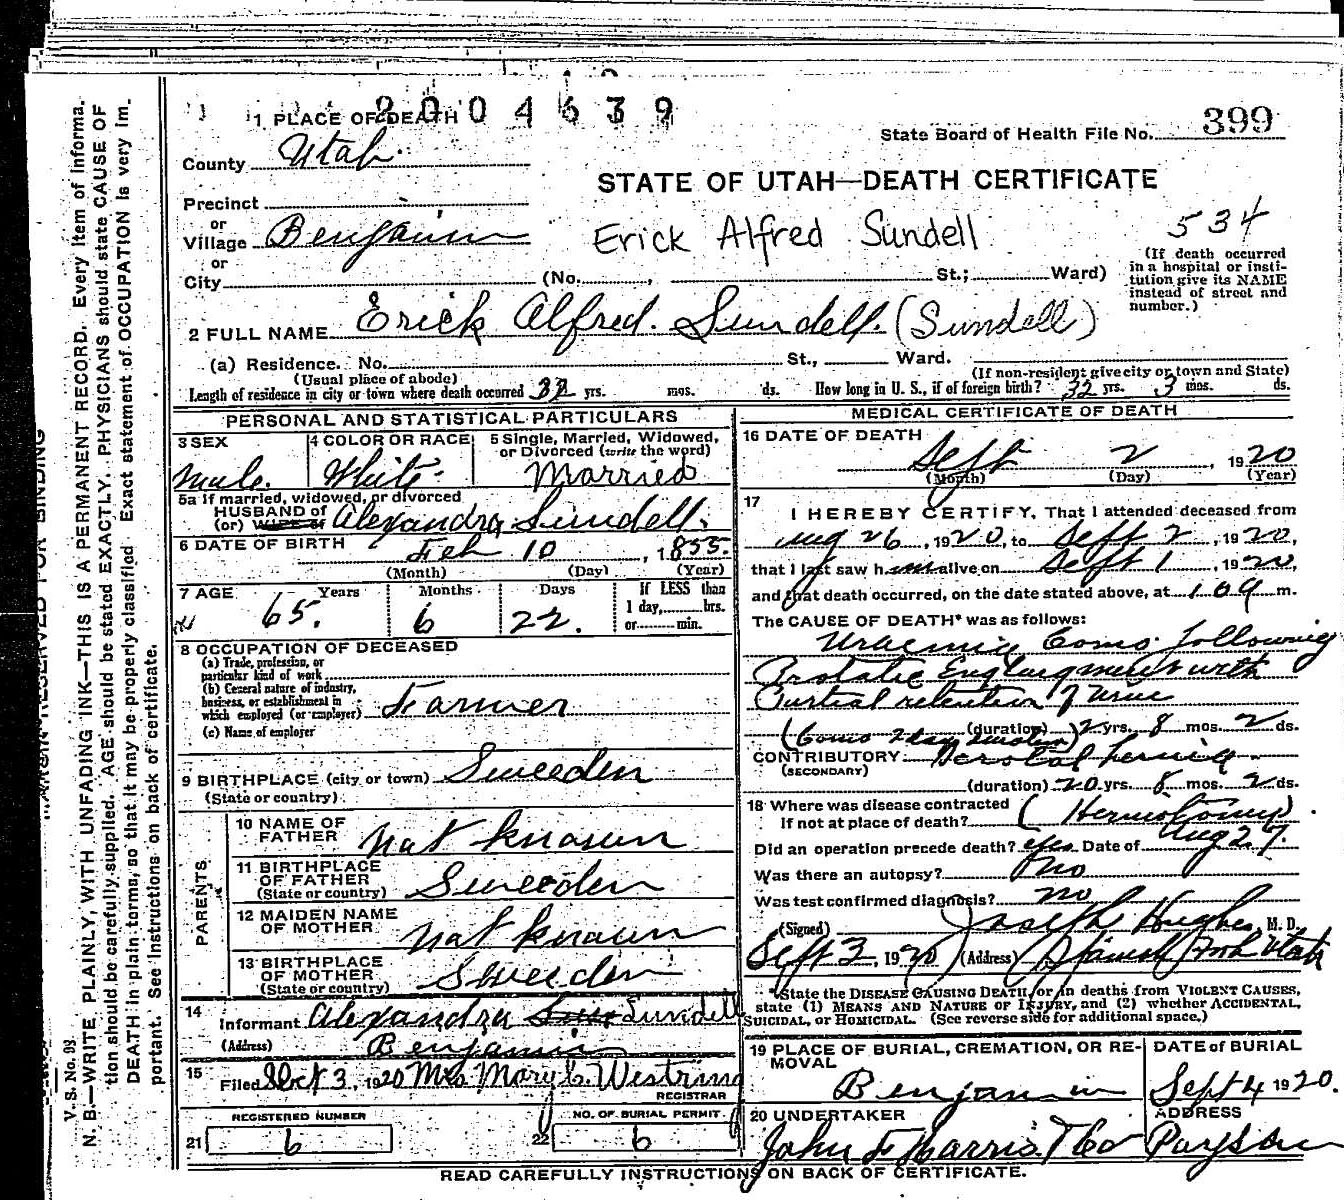 2004639
1 PLACE OF DEATH
State Board of Health File No. 399
County Utah
STATE OF UTAH—DEATH CERTIFICATE
Precinct
or
Village Benjamin
Erick Alfred Sundell
534
(If death occurred
in a hospital or insti-
tution give its NAME
instead of street and
number.)
or
City (No. , St.; Ward)
2 FULL NAME Erick Alfred. Sundell. (Sundell)
(a) Residence. No. St., Ward.
(Usual place of abode) (If non-resident give city or town and State)
Length of residence in city or town where death occurred 32 yrs. mos. ds. How long in U. S., if of foreign birth? 32 yrs. 3 mos. ds.
PERSONAL AND STATISTICAL PARTICULARS
3 SEX
Male.
4 COLOR OR RACE
White.
5 Single, Married, Widowed,
or Divorced (write the word)
Married
5a If married, widowed, or divorced
HUSBAND of
(or) WIFE of Alexandra Sundell.
6 DATE OF BIRTH Feb 10, 1855.
(Month) (Day) (Year)
7 AGE Years Months Days If LESS than
1 day, hrs.
or min.
65. 6 22.
8 OCCUPATION OF DECEASED
(a) Trade, profession, or
particular kind of work
(b) General nature of industry,
business, or establishment in
which employed (or employer) Farmer
(c) Name of employer
9 BIRTHPLACE (city or town) Sweeden
(State or country)
PARENTS
10 NAME OF
FATHER Not known
11 BIRTHPLACE
OF FATHER
(State or country) Sweeden
12 MAIDEN NAME
OF MOTHER Not known
13 BIRTHPLACE
OF MOTHER
(State or country) Sweeden
14
Informant Alexandra Sundell
(Address) Benjamin
15
Filed Sept 3, 1920 Mrs Mary C. Westring
REGISTRAR
REGISTERED NUMBER
21 6
NO. OF BURIAL PERMIT.
22 6
MEDICAL CERTIFICATE OF DEATH
16 DATE OF DEATH
Sept 2, 1920
(Month) (Day) (Year)
17
I HEREBY CERTIFY, That I attended deceased from
Aug 26, 1920, to Sept 2, 1920,
that I last saw him alive on Sept 1, 1920,
and that death occurred, on the date stated above, at 1.09 m.
The CAUSE OF DEATH* was as follows:
Uraemic Coma following
Prostatic Englargment with
Partial retention of urine
(duration) 2 yrs. 8 mos. 2 ds.
(Coma 2 day duration)
CONTRIBUTORY hernia
(SECONDARY)
(duration) 20 yrs. 8 mos. 2 ds.
18 Where was disease contracted
If not at place of death? (Herniotomy)
Did an operation precede death? yes Date of Aug 27.
Was there an autopsy? No
Was test confirmed diagnosis? no
(Signed) Joseph Hughes M. D.
Sept 3, 1920 (Address) Spanish Fork Utah
*State the DISEASE CAUSING DEATH, or in deaths from VIOLENT CAUSES,
state (1) MEANS AND NATURE OF INJURY, and (2) whether ACCIDENTAL,
SUICIDAL, OR HOMICIDAL. (See reverse side for additional space.)
19 PLACE OF BURIAL, CREMATION, OR RE-
MOVAL
Benjamin
DATE of BURIAL
Sept 4 1920.
20 UNDERTAKER
John F Harris & Co
ADDRESS
Payson
READ CAREFULLY INSTRUCTIONS ON BACK OF CERTIFICATE.
V. S. No. 98.
N. B.—WRITE PLAINLY, WITH UNFADING INK—THIS IS A PERMANENT RECORD. Every item of informa-
tion should be carefully supplied. AGE should be stated EXACTLY. PHYSICIANS should state CAUSE OF
DEATH in plain terms, so that it may be properly classified. Exact statement of OCCUPATION is very im-
portant. See instructions on back of certificate.
MARGIN RESERVED FOR BINDING